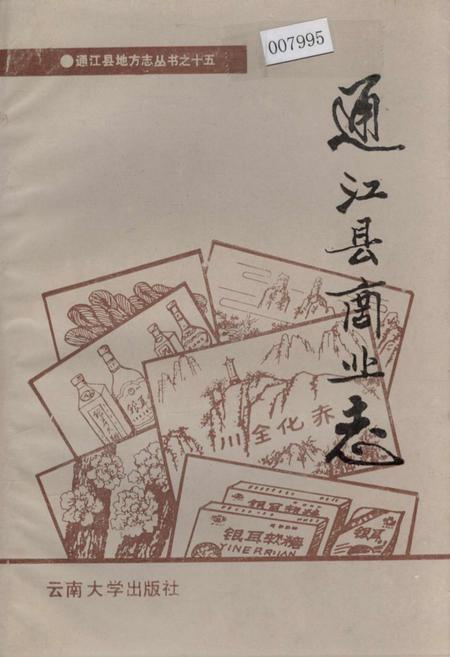 007995
●通江县地方志丛书之十五
通江县商业志
川全化赤
银耳软糖
银耳软糖
YINERRUAN
银耳
云南大学出版社